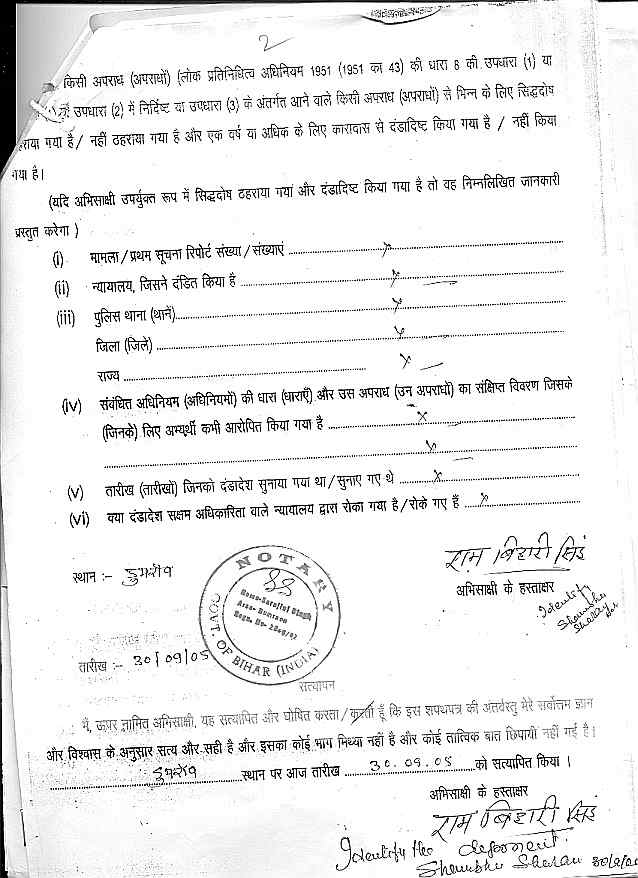 2
किसी अपराध (अपराधों) (लोक प्रतिनिधित्व अधिनियम 1951 (1951 का 43) की धारा 8 की उपधारा (1) या
उपधारा (2) में निर्दिष्ट या उपधारा (3) के अंतर्गत आने वाले किसी अपराध (अपराधों) से भिन्न के लिए सिद्धदोष
ठहराया गया है / नहीं ठहराया गया है और एक वर्ष या अधिक के लिए कारावास से दंडादिष्ट किया गया है / नहीं किया
गया है।
(यदि अभिसाक्षी उपर्युक्त रूप में सिद्धदोष ठहराया गया और दंडादिष्ट किया गया है तो वह निम्नलिखित जानकारी
प्रस्तुत करेगा )
(i) मामला / प्रथम सूचना रिपोर्ट संख्या / संख्याएं ........ x
(ii) न्यायालय, जिसने दंडित किया है ........ x
(iii) पुलिस थाना (थानें)........ x
जिला (जिले) ........ x
राज्य ........ x
(iv) संबंधित अधिनियम (अधिनियमों) की धारा (धाराएँ) और उस अपराध (उन अपराधों) का संक्षिप्त विवरण जिसके
(जिनके) लिए अभ्यर्थी कभी आरोपित किया गया है ........ x
........ x
(v) तारीख (तारीखों) जिनको दंडादेश सुनाया गया था / सुनाए गए थे ........ x
(vi) क्या दंडादेश सक्षम अधिकारिता वाले न्यायालय द्वारा रोका गया है / रोके गए हैं ........ x
राम बिहारी सिंह
स्थान :- डुमराँव
अभिसाक्षी के हस्ताक्षर
Identify
Shambhu
Sharan
NOTARY
GOVT. OF BIHAR (INDIA)
Area- Dumraon
तारीख :- 30/09/05
सत्यापन
मैं, ऊपर नामित अभिसाक्षी, यह सत्यापित और घोषित करता / करती हूँ कि इस शपथपत्र की अंतर्वस्तु मेरे सर्वोत्तम ज्ञान
और विश्वास के अनुसार सत्य और सही है और इसका कोई भाग मिथ्या नहीं है और कोई तात्विक बात छिपायी नहीं गई है।
डुमराँव स्थान पर आज तारीख 30.09.05 को सत्यापित किया ।
अभिसाक्षी के हस्ताक्षर
राम बिहारी सिंह
Identify the deponent.
Shambhu Sharan